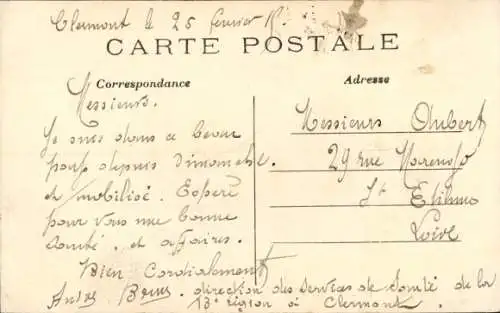 Clermont le 25 février 15
CARTE POSTALE
Correspondance
Adresse
Messieurs.
Je suis dans ce beau
pays depuis dimanche.
et mobilisé. Espère
pour vous une bonne
santé. et affaires.
Bien Cordialement
direction des services de santé de la
13e région à Clermont.
Messieurs Aubert
29 rue Marengo
St Etienne
Loire